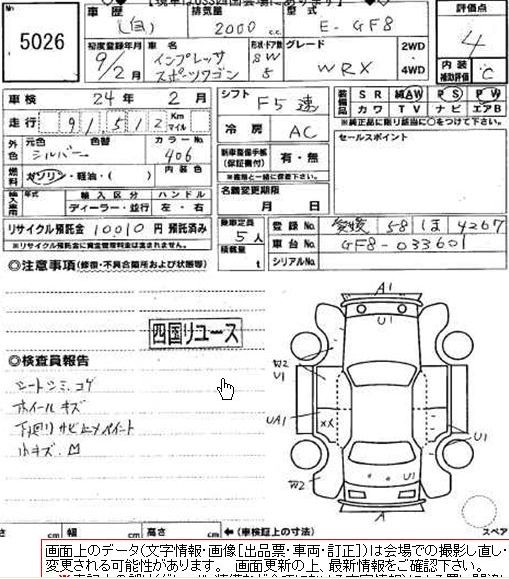 No
5026
車歴
(自)
排気量
2000 cc
型式
E-GF8
評価点
4
内装補助評価 C
初度登録年月
9/2月
車名
インプレッサ
スポーツワゴン
形状・ドア数
SW
5
グレード
WRX
2WD・4WD
車検 24年 2月
走行 91,512 Km マイル
外色 元色 シルバー 色替 カラーNo. 406
燃料 ガソリン・軽油・( ) 内装色
輸入車用 年式 輸入区分 ハンドル
ディーラー・並行 左・右
リサイクル預託金 10010円 預託済み
※リサイクル預託金に資金管理料金は含まれません。
シフト F5速
冷房 AC
新車整備手帳(保証書付) 有・無
※書類と一緒に保管下さい。
名義変更期限
月 日
乗車定員 5人
積載量 t
装備品 SR 純AW PS PW
カワ TV ナビ エアB
※純正品に限り該当に○をつけて下さい。
セールスポイント
登録No. 愛媛 58 ほ 4267
車台No. GF8-033601
シリアルNo.
◎注意事項(修復・不具合箇所および状態等)
四国リユース
◎検査員報告
シートシミ.コゲ
ホイールキズ
下廻りサビ止メペイント
小キズ.凹
A1
U1
W2
U1
UA1
XX
U1
W2
U1
A
スペア
cm 幅 cm 高さ cm ←(車検証上の寸法)
画面上のデータ(文字情報・画像[出品票・車両・訂正])は会場での撮影し直し・
変更される可能性があります。 画面更新の上、最新情報をご確認下さい。